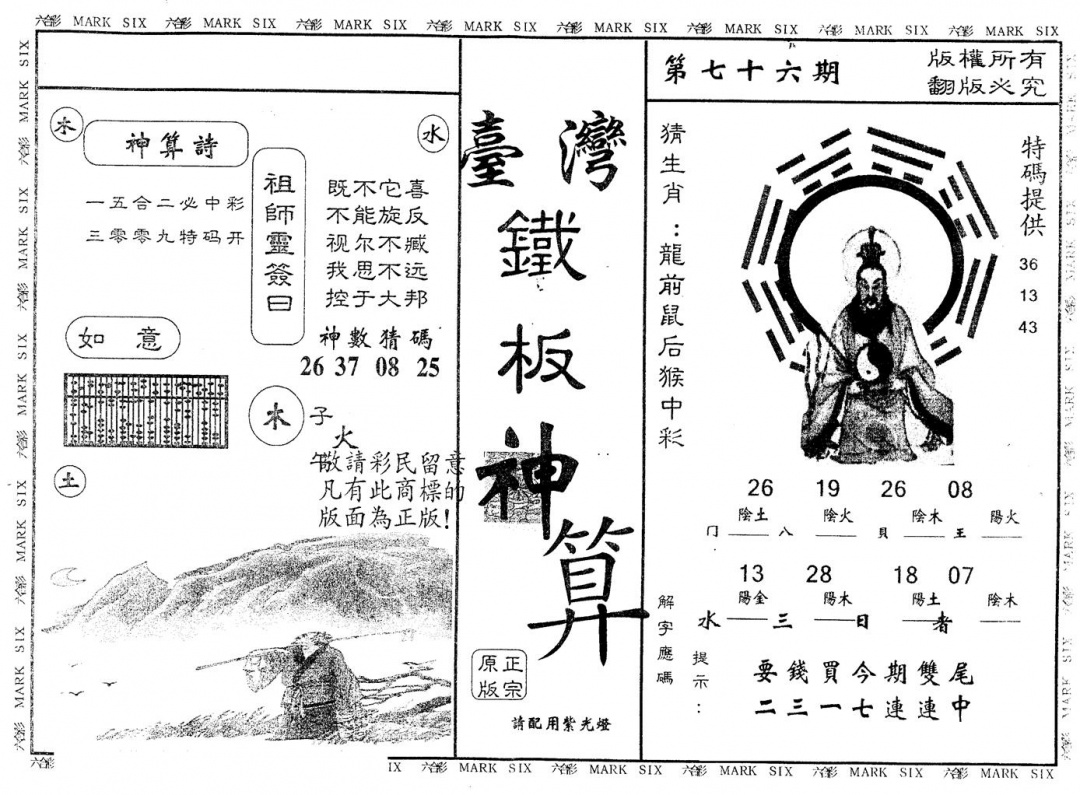 六合彩 MARK SIX 六合彩 MARK SIX 六合彩 MARK SIX 六合彩 MARK SIX 六合彩 MARK SIX 六合彩 MARK SIX 六合彩 MARK SIX 六合彩 MARK SIX
第七十六期
版權所有
翻版必究
木
神算詩
水
一五合二必中彩
三零零九特码开
祖師靈簽曰
既不它喜
不能旋反
视尔不臧
我思不远
控于大邦
神數猜碼
26 37 08 25
如意
木
子
火
午
敬請彩民留意
凡有此商標的
版面為正版!
土
臺灣
鐵
板
神
算
正宗
原版
請配用紫光燈
猜生肖:龍前鼠后猴中彩
特碼提供
36
13
43
26 19 26 08
陰土 陰火 陰木 陽火
门 八 貝 王
13 28 18 07
陽金 陽木 陽土 陰木
水 三 日 者
解字應碼
提示:
要錢買今期雙尾
二三一七連連中
IX 六合彩 MARK SIX 六合彩 MARK SIX 六合彩 MARK SIX 六合彩 MARK SIX 六合彩 MARK SIX